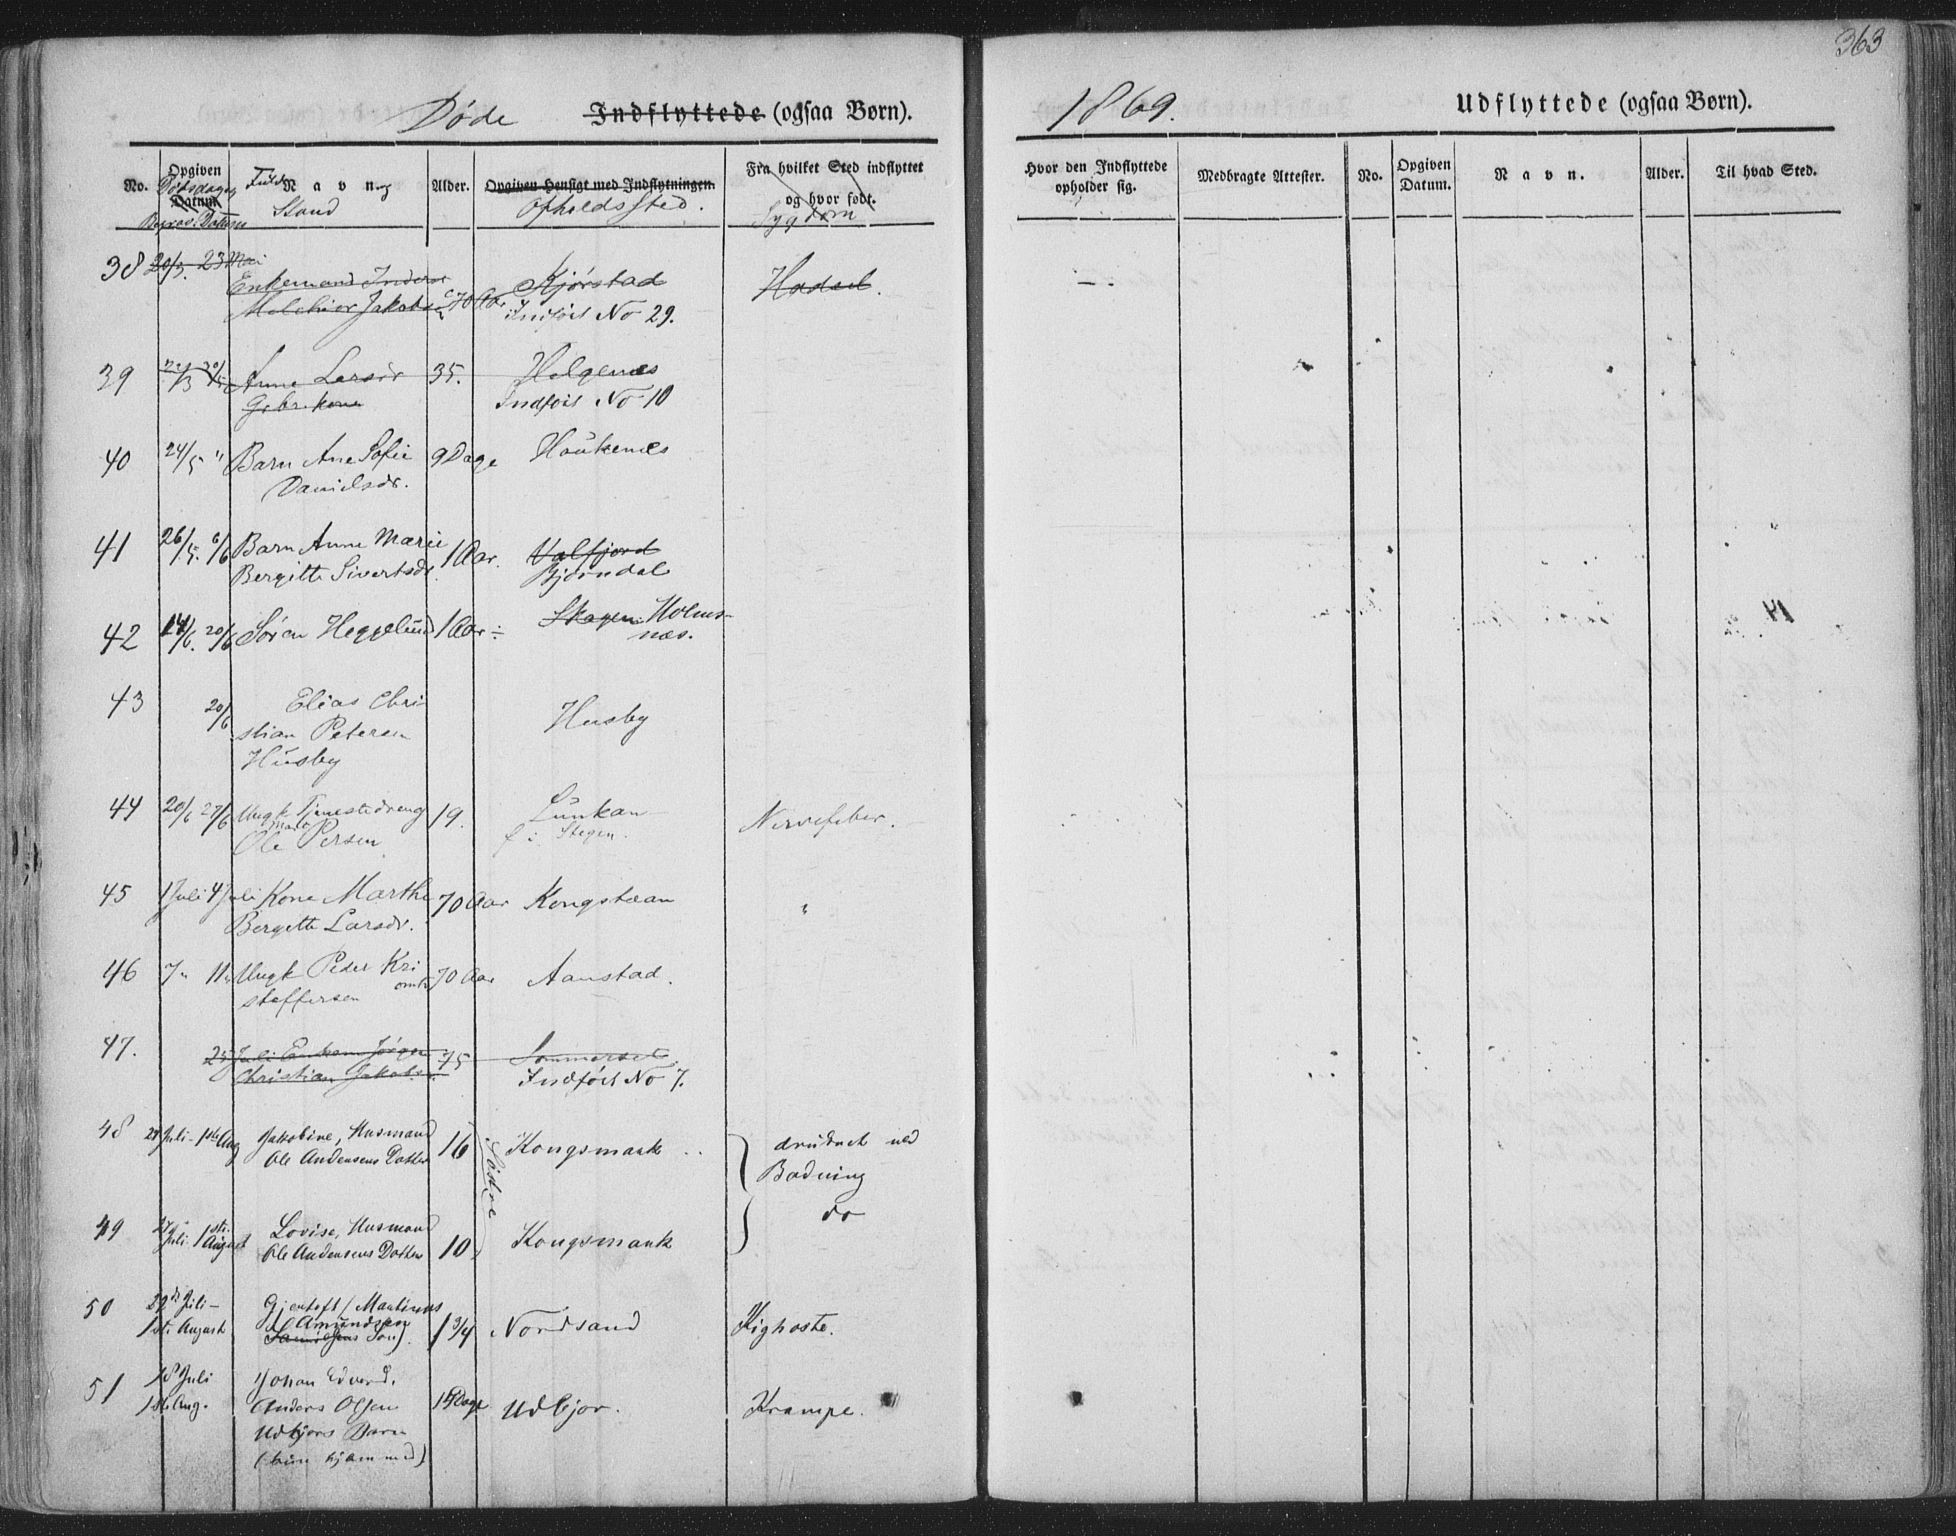 363
Døde Indflyttede (ogsaa Børn).
1869.
Udflyttede (ogsaa Børn).
No.
Opgiven
Dødsdage
Datum
Begrav. Datum
Fulde Navn og
Stand
Alder.
Opgiven Hensigt med Indflytningen.
Opholdssted.
Fra hvilket Sted indflyttet
og hvor født.
Sygdom
Hvor den Indflyttede
opholder sig.
Medbragte Attester.
No.
Opgiven
Datum.
Navn.
Alder.
Til hvad Sted.
38 20/3. 23 Mai
Enkemand Inderst
Melchior Jakobsen 70 Aar
Kjørstad
Indført No 29.
Hadsel.
39 Anne Larsdr 35. Helgenes
Gbr. kone Indført No 10
40 24/5 " Barn Ane Sofie 9 Dage Haukenes
Danielsdr.
41 26/5. 6/6 Barn Anne Marie 1 Aar. Valfjord
Bergitte Sivertsdr. Bjørndal
42 14/6. 20/6 Søren Heggelund 1 Aar Skagen Holms-
næs.
43 20/6 Elias Chri
stian Petersen Husby
Husby
44 20/6 27/6 Ungk Tjenestedreng 19. Lunkan
Ole Persen f i Stegen. Nervefeber.
45 1 Juli 4 Juli Kone Marthe 70 Aar Kongstaan "
Bergitte Larsdr.
46 7" 11" Ungk Peder Kri 70 Aar Aanstad.
stoffersen omtr
47. 25 Juli Enkem Jørgen 75 Sommerset
Christian Jakobs. Indført No 7.
48 Juli - 1ste Aug Jakobine, Husmand 16 Kongsmark druknet ved
Ole Andersens Datter Søstre Badning
49 27 Juli. 1ste August Lovise, Husmand 10 Kongsmark do
Ole Andersens Datter
50 29de Juli - Gjertoft (Martinus
1ste August Amundsen
Søn). 1 3/4 Nordsand Kighoste.
51 18 Juli Johan Edvard.
1ste Aug. Anders Olsen Dage Udbjor. Krampe.
Udbjors Barn